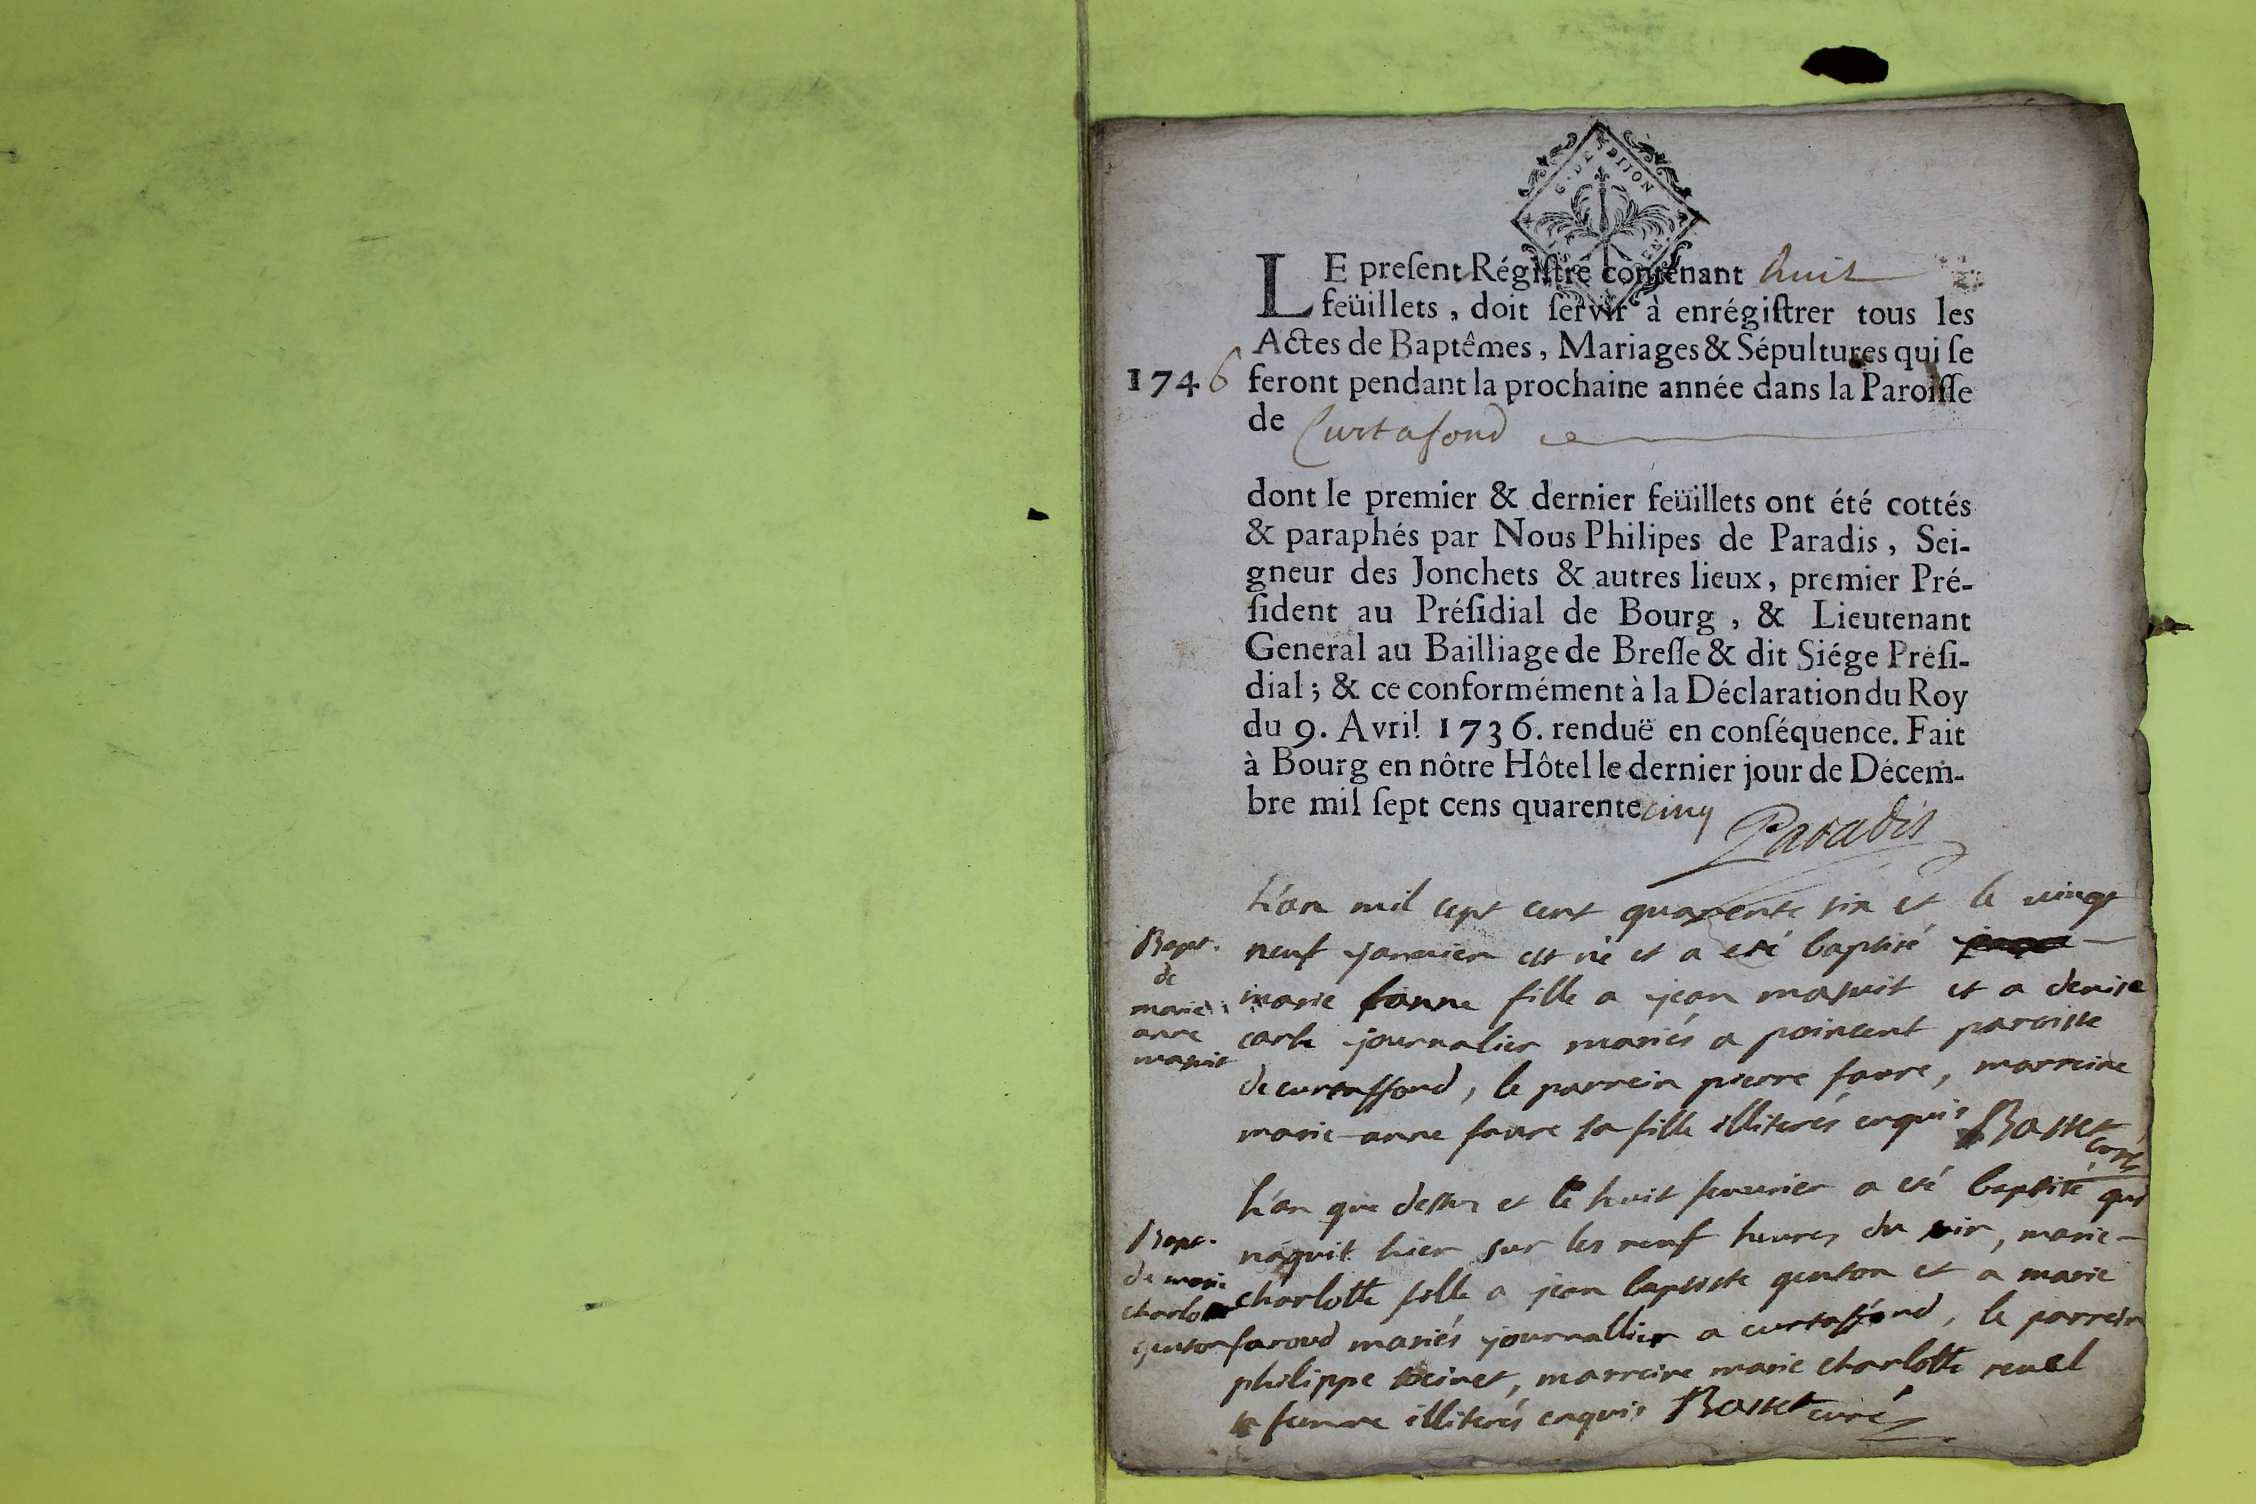 G. DE DIJON
LE preſent Régiſtre contenant huit
feüillets, doit ſervir à enrégiſtrer tous les
Actes de Baptêmes, Mariages & Sépultures qui ſe
1746 feront pendant la prochaine année dans la Paroiſſe
de Curtafond
dont le premier & dernier feüillets ont été cottés
& paraphés par Nous Philipes de Paradis, Sei-
gneur des Jonchets & autres lieux, premier Pré-
ſident au Préſidial de Bourg, & Lieutenant
General au Bailliage de Breſſe & dit Siége Préſi-
dial; & ce conformément à la Déclaration du Roy
du 9. Avril 1736. renduë en conſéquence. Fait
à Bourg en nôtre Hôtel le dernier jour de Décem-
bre mil ſept cens quarente cinq
Paradis
L'an mil sept cent quarente six et le vingt
neuf janvier est né et a eté baptisé
marie anne fille a jean masuit et a denise
journalier mariés a poincent paroisse
de curtaffond, le parrein pierre favre, marreine
marie-anne favre sa fille illiterés enquis Basset
curé
Bapt.
de
marie
anne
masuit
L'an que dessus et le huit fevurier a eté baptisé qui
naquit hier sur les neuf heures du soir, marie-
charlotte fille a jean baptiste genton et a marie
faroud mariés journallier a curtaffond, le parrein
philippe marreine marie charlotte revel
sa femme illiterés enquis Basset curé
Bapt.
de marie
charlotte
genton